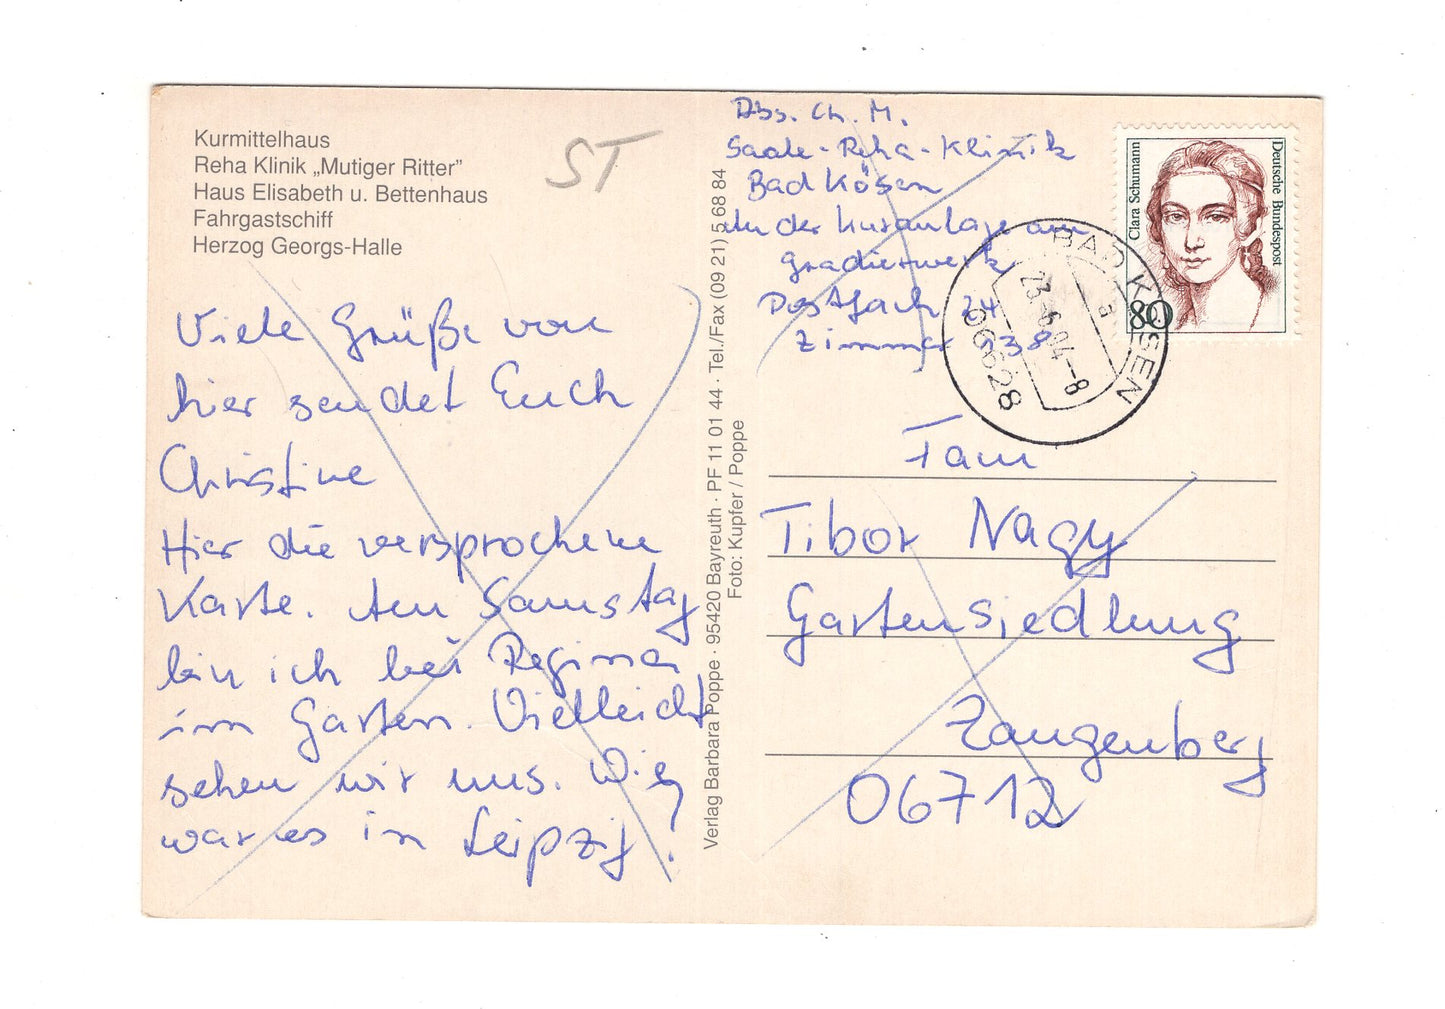 Kurmittelhaus
Reha Klinik „Mutiger Ritter”
Haus Elisabeth u. Bettenhaus
Fahrgastschiff
Herzog Georgs-Halle
ST
Viele Grüße von
hier sendet Euch
Christine
Hier die versprochene
Karte. Am Samstag
bin ich bei Regina
im Garten. Vielleicht
sehen wir uns. Wie
war es in Leipzig?
Verlag Barbara Poppe · 95420 Bayreuth · PF 11 01 44 · Tel./Fax (09 21) 5 68 84
Foto: Kupfer / Poppe
Abs. Ch. M.
Saale-Reha-Klinik
Bad Kösen
In der Kuranlage am
Gradierwerk
Postfach 24
Zimmer 538
Clara Schumann
Deutsche Bundespost
80
BAD KÖSEN
a
23.-6.94-8
06628
Fam
Tibor Nagy
Gartensiedlung
Zangenberg
06712